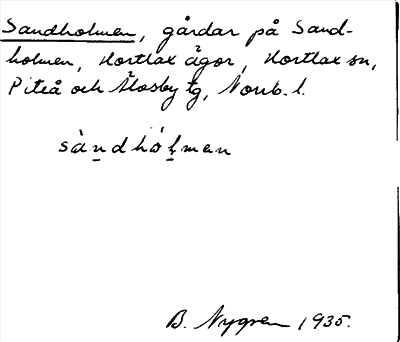 Sandholmen, gårdar på Sand-
holmen, Hortlax ägor, Hortlax sn,
Piteå och Älvsby tg, Norrb. l.
sàndhòḷmen
B. Nygren 1935.